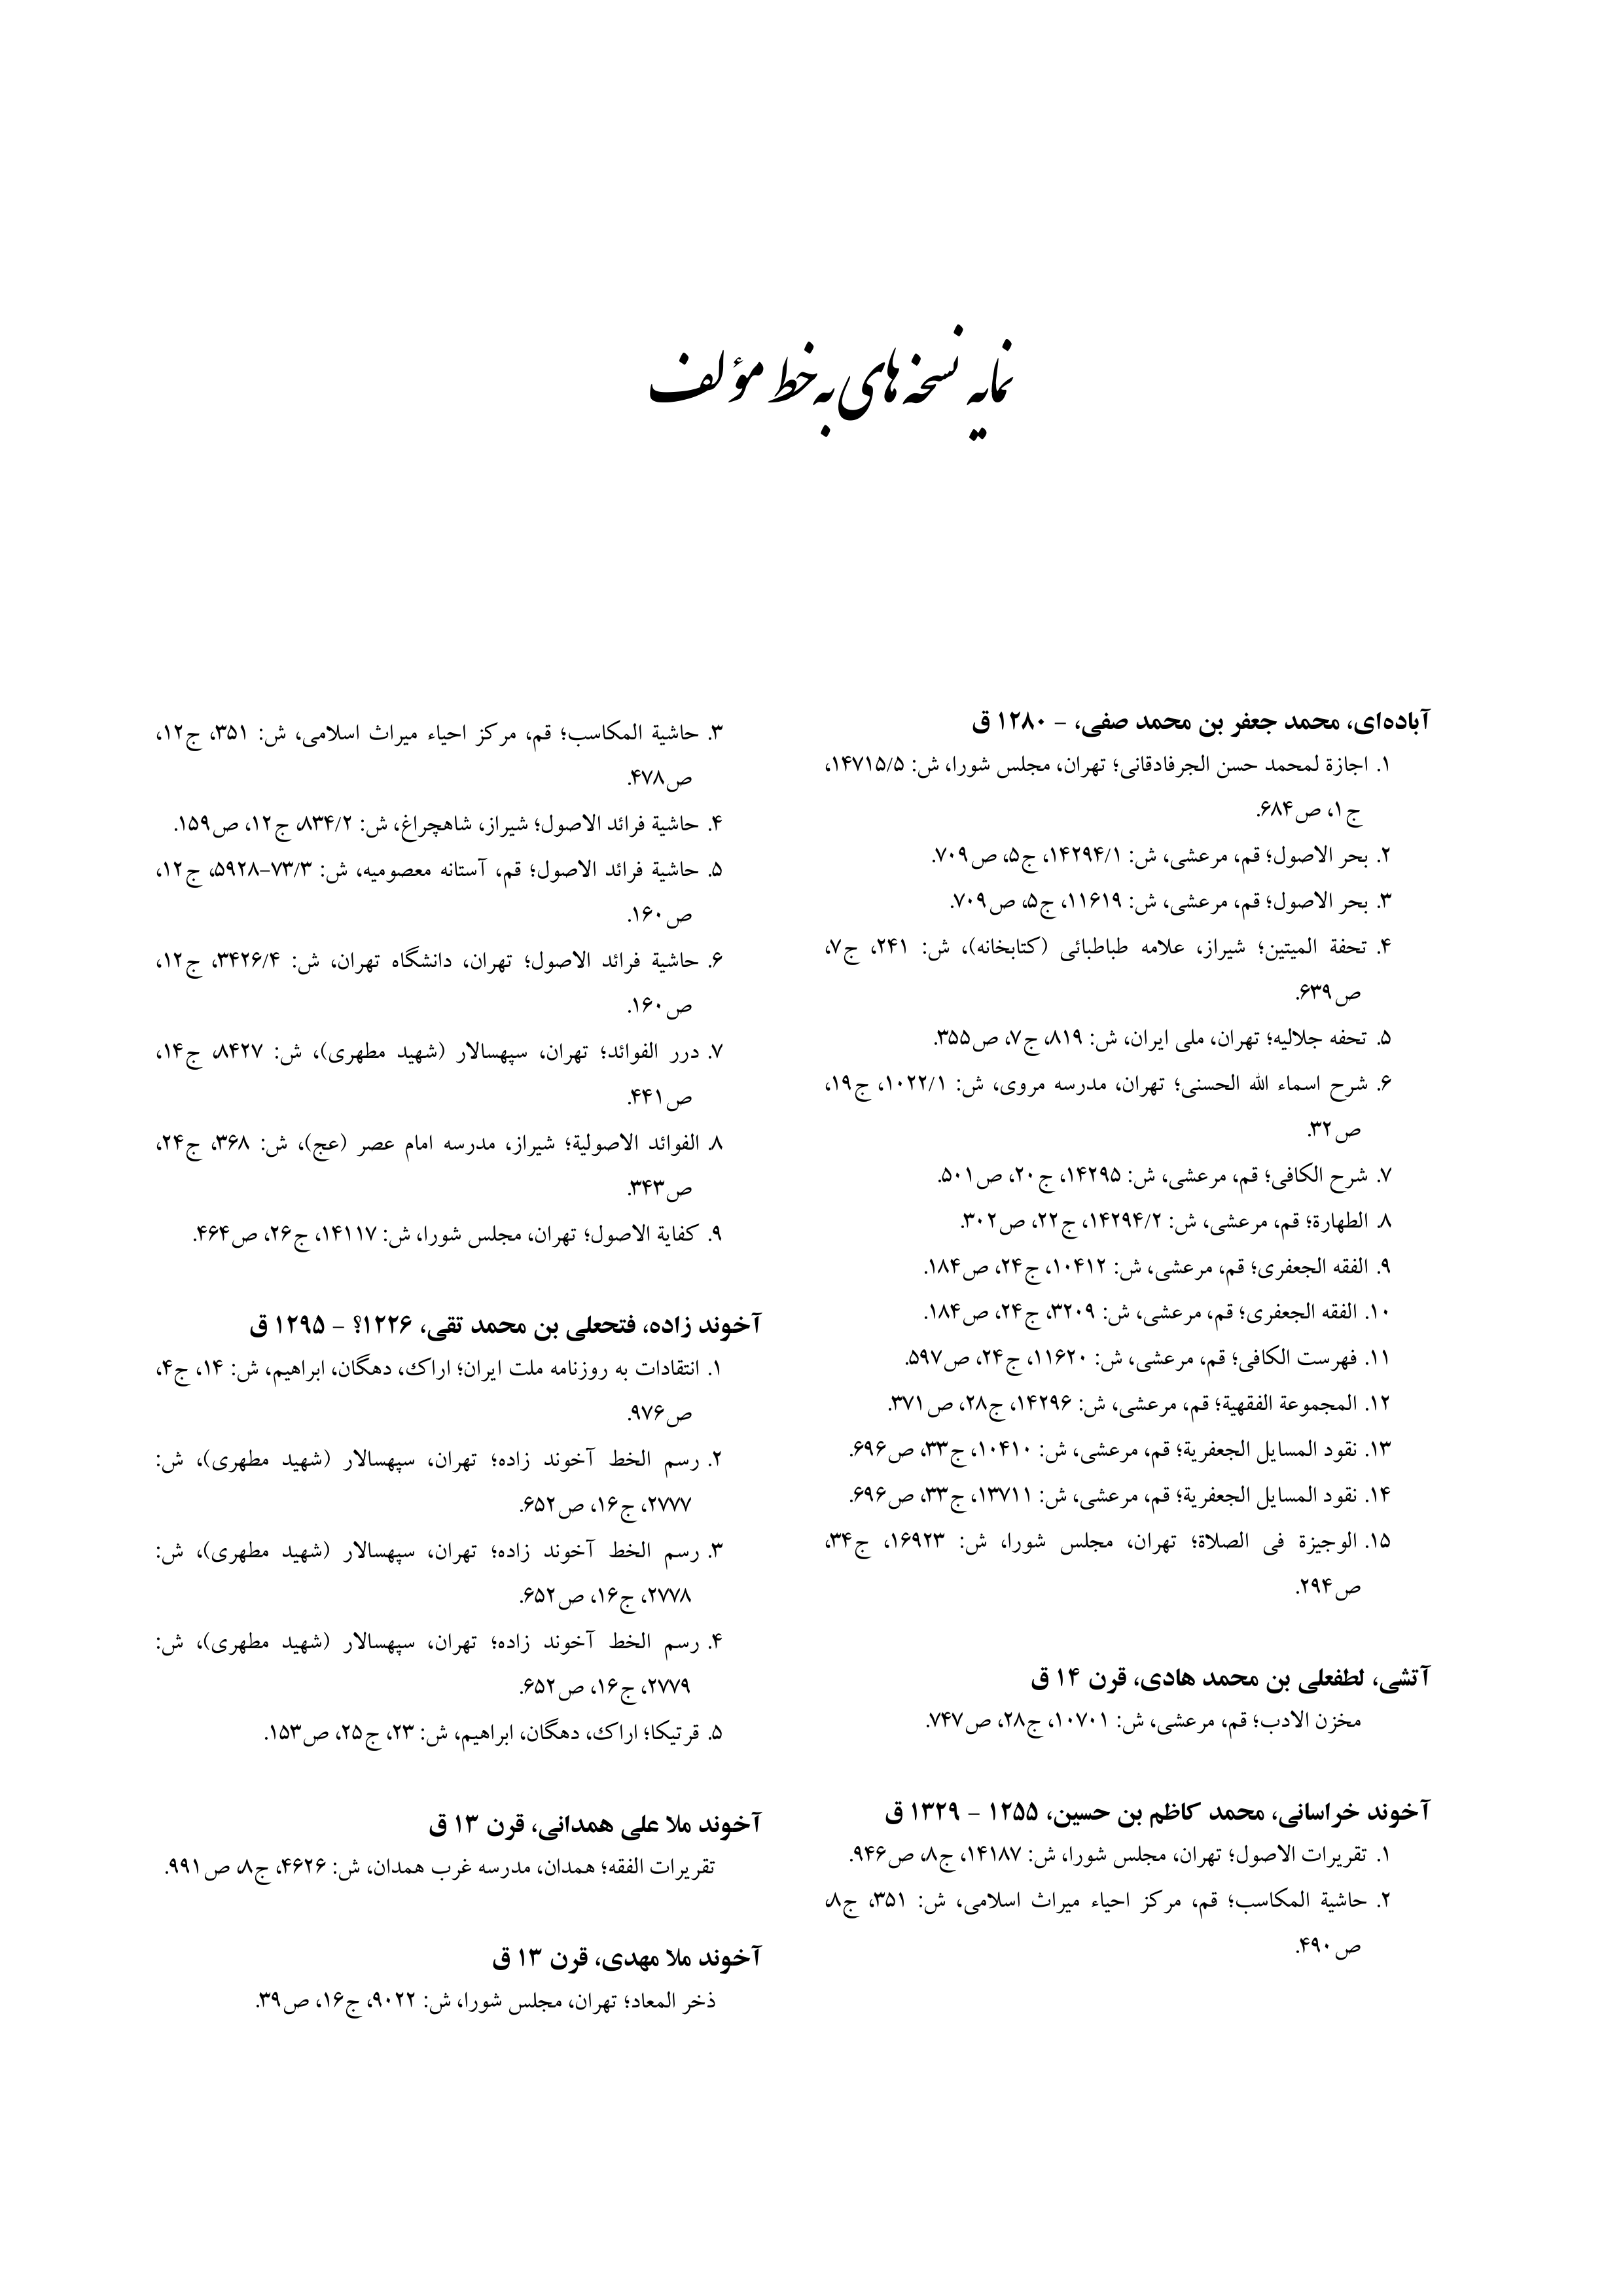 نمایه نسخه‌های به خط مؤلف
آباده‌ای، محمد جعفر بن محمد صفی، - ۱۲۸۰ ق
۱. اجازة لمحمد حسن الجرفادقانی؛ تهران، مجلس شورا، ش: ۱۴۷۱۵/۵،
ج۱، ص۶۸۴.
۲. بحر الاصول؛ قم، مرعشی، ش: ۱۴۲۹۴/۱، ج۵، ص۷۰۹.
۳. بحر الاصول؛ قم، مرعشی، ش: ۱۱۶۱۹، ج۵، ص۷۰۹.
۴. تحفة المیتین؛ شیراز، علامه طباطبائی (کتابخانه)، ش: ۲۴۱، ج۷،
ص۶۳۹.
۵. تحفه جلالیه؛ تهران، ملی ایران، ش: ۸۱۹، ج۷، ص۳۵۵.
۶. شرح اسماء الله الحسنی؛ تهران، مدرسه مروی، ش: ۱۰۲۲/۱، ج۱۹،
ص۳۲.
۷. شرح الکافی؛ قم، مرعشی، ش: ۱۴۲۹۵، ج۲۰، ص۵۰۱.
۸. الطهارة؛ قم، مرعشی، ش: ۱۴۲۹۴/۲، ج۲۲، ص۳۰۲.
۹. الفقه الجعفری؛ قم، مرعشی، ش: ۱۰۴۱۲، ج۲۴، ص۱۸۴.
۱۰. الفقه الجعفری؛ قم، مرعشی، ش: ۳۲۰۹، ج۲۴، ص۱۸۴.
۱۱. فهرست الکافی؛ قم، مرعشی، ش: ۱۱۶۲۰، ج۲۴، ص۵۹۷.
۱۲. المجموعة الفقهیة؛ قم، مرعشی، ش: ۱۴۲۹۶، ج۲۸، ص۳۷۱.
۱۳. نقود المسایل الجعفریة؛ قم، مرعشی، ش: ۱۰۴۱۰، ج۳۳، ص۶۹۶.
۱۴. نقود المسایل الجعفریة؛ قم، مرعشی، ش: ۱۳۷۱۱، ج۳۳، ص۶۹۶.
۱۵. الوجیزة فی الصلاة؛ تهران، مجلس شورا، ش: ۱۶۹۲۳، ج۳۴،
ص۲۹۴.
آتشی، لطفعلی بن محمد هادی، قرن ۱۴ ق
مخزن الادب؛ قم، مرعشی، ش: ۱۰۷۰۱، ج۲۸، ص۷۴۷.
آخوند خراسانی، محمد کاظم بن حسین، ۱۲۵۵ - ۱۳۲۹ ق
۱. تقریرات الاصول؛ تهران، مجلس شورا، ش: ۱۴۱۸۷، ج۸، ص۹۴۶.
۲. حاشیة المکاسب؛ قم، مرکز احیاء میراث اسلامی، ش: ۳۵۱، ج۸،
ص۴۹۰.
۳. حاشیة المکاسب؛ قم، مرکز احیاء میراث اسلامی، ش: ۳۵۱، ج۱۲،
ص۴۷۸.
۴. حاشیة فرائد الاصول؛ شیراز، شاهچراغ، ش: ۸۳۴/۲، ج۱۲، ص۱۵۹.
۵. حاشیة فرائد الاصول؛ قم، آستانه معصومیه، ش: ۷۳/۳-۵۹۲۸، ج۱۲،
ص۱۶۰.
۶. حاشیة فرائد الاصول؛ تهران، دانشگاه تهران، ش: ۳۴۲۶/۴، ج۱۲،
ص۱۶۰.
۷. درر الفوائد؛ تهران، سپهسالار (شهید مطهری)، ش: ۸۴۲۷، ج۱۴،
ص۴۴۱.
۸. الفوائد الاصولیة؛ شیراز، مدرسه امام عصر (عج)، ش: ۳۶۸، ج۲۴،
ص۳۴۳.
۹. کفایة الاصول؛ تهران، مجلس شورا، ش: ۱۴۱۱۷، ج۲۶، ص۴۶۴.
آخوند زاده، فتحعلی بن محمد تقی، ۱۲۲۶؟ - ۱۲۹۵ ق
۱. انتقادات به روزنامه ملت ایران؛ اراک، دهگان، ابراهیم، ش: ۱۴، ج۴،
ص۹۷۶.
۲. رسم الخط آخوند زاده؛ تهران، سپهسالار (شهید مطهری)، ش:
۲۷۷۷، ج۱۶، ص۶۵۲.
۳. رسم الخط آخوند زاده؛ تهران، سپهسالار (شهید مطهری)، ش:
۲۷۷۸، ج۱۶، ص۶۵۲.
۴. رسم الخط آخوند زاده؛ تهران، سپهسالار (شهید مطهری)، ش:
۲۷۷۹، ج۱۶، ص۶۵۲.
۵. قرتیکا؛ اراک، دهگان، ابراهیم، ش: ۲۳، ج۲۵، ص۱۵۳.
آخوند ملا علی همدانی، قرن ۱۳ ق
تقریرات الفقه؛ همدان، مدرسه غرب همدان، ش: ۴۶۲۶، ج۸، ص۹۹۱.
آخوند ملا مهدی، قرن ۱۳ ق
ذخر المعاد؛ تهران، مجلس شورا، ش: ۹۰۲۲، ج۱۶، ص۳۹.